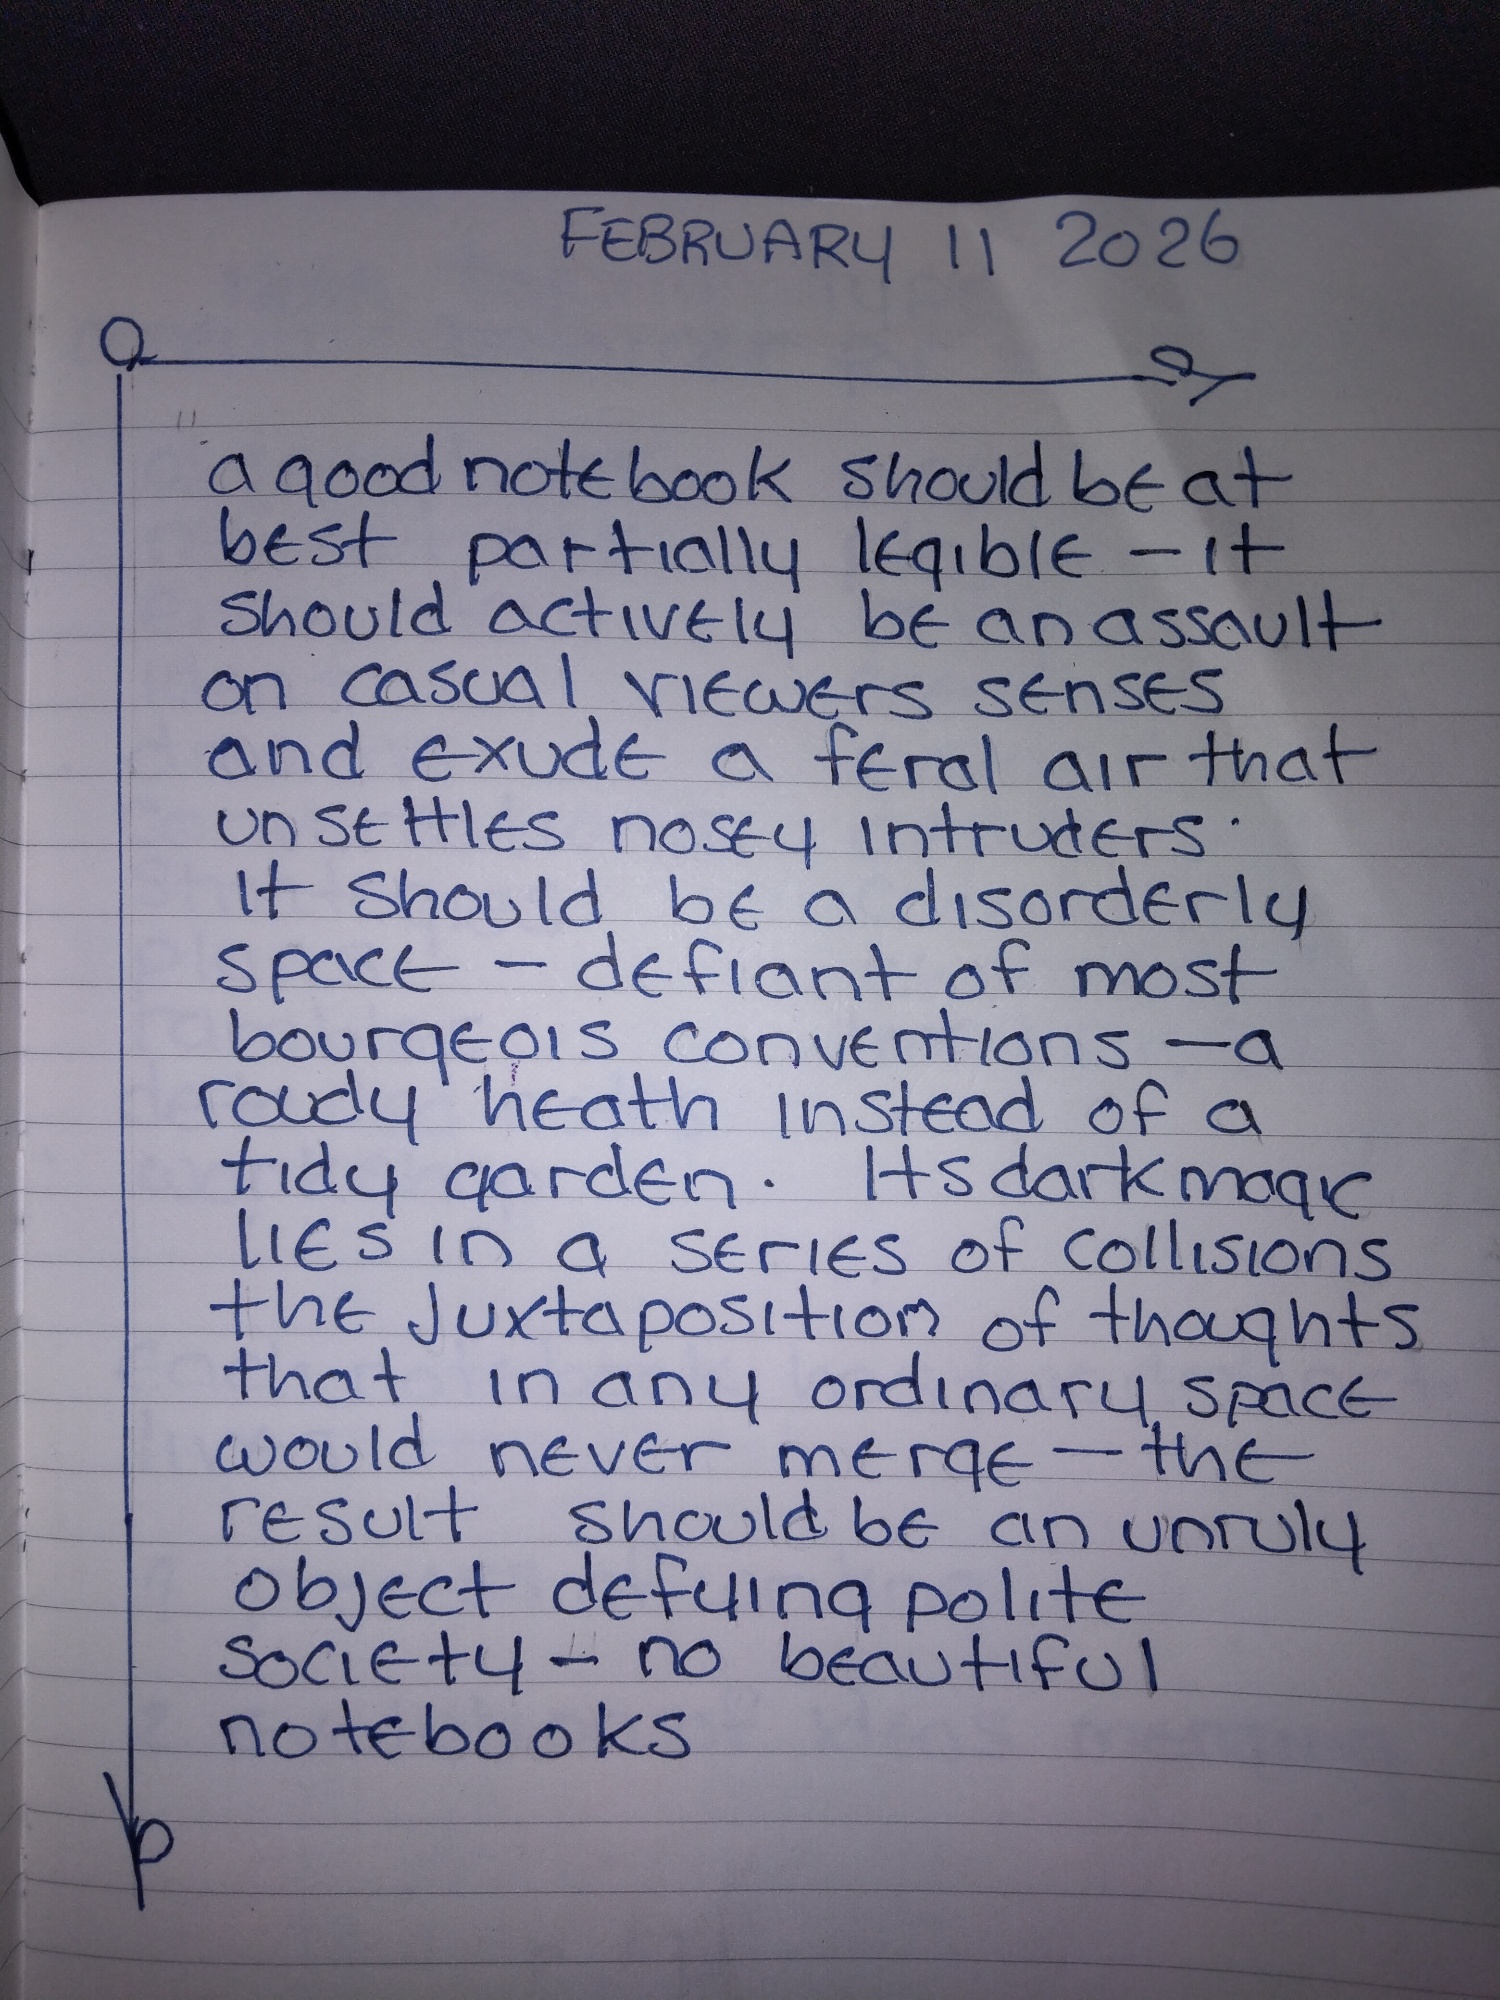 FEBRUARY 11 2026
a good notebook should be at
best partially legible - it
should actively be an assault
on casual viewers senses
and exude a feral air that
unsettles nosey intruders.
It should be a disorderly
space - defiant of most
bourgeois conventions - a
roudy heath instead of a
tidy garden. Its dark magic
lies in a series of collisions
the juxtaposition of thoughts
that in any ordinary space
would never merge - the
result should be an unruly
object defying polite
society - no beautiful
notebooks